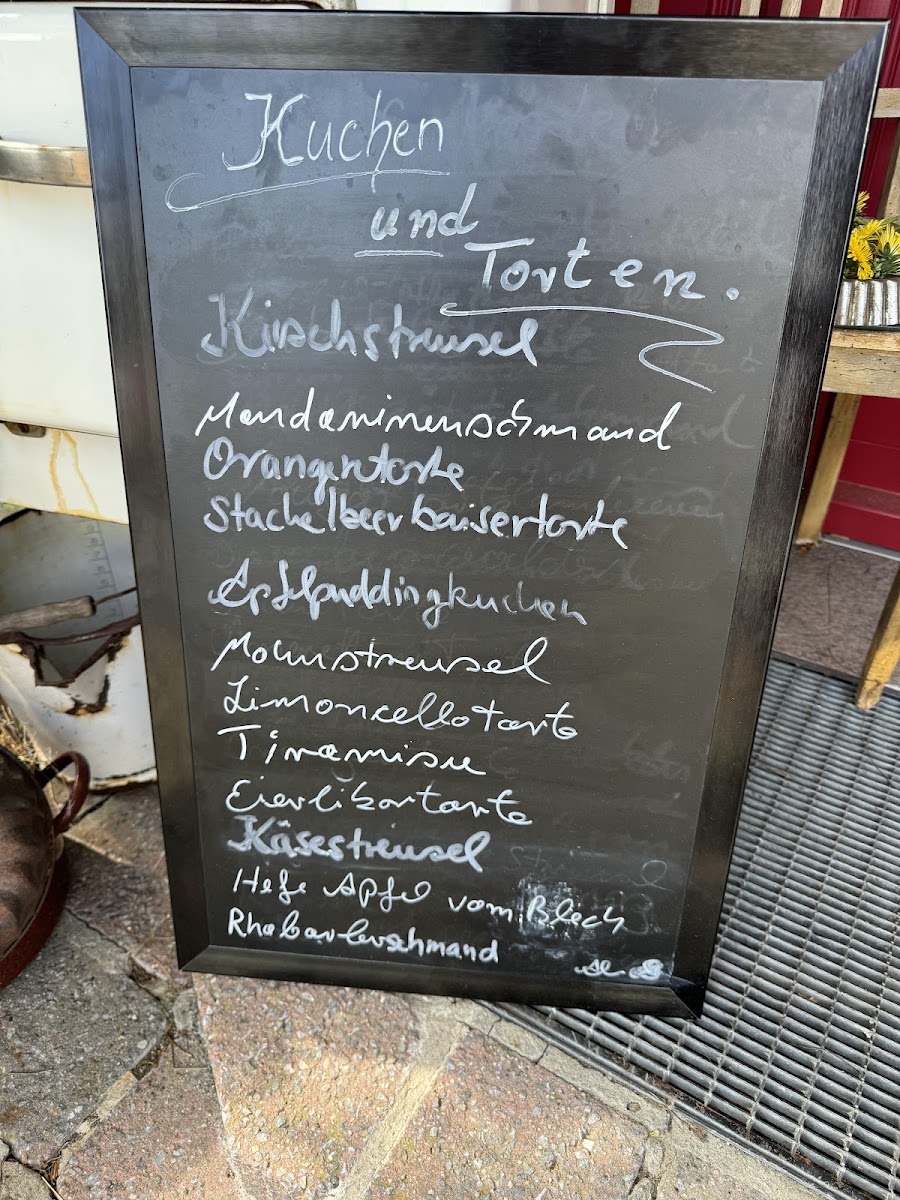 Kuchen
und
Torten.
Kirschstreusel
Mandarinenschmand
Orangentorte
Stachelbeerbaisertorte
Apfelpuddingkuchen
Mohnstreusel
Limoncellotarte
Tiramisu
Eierlikörtarte
Käsestreusel
Hefe Apfel vom Blech
Rhabarberschmand